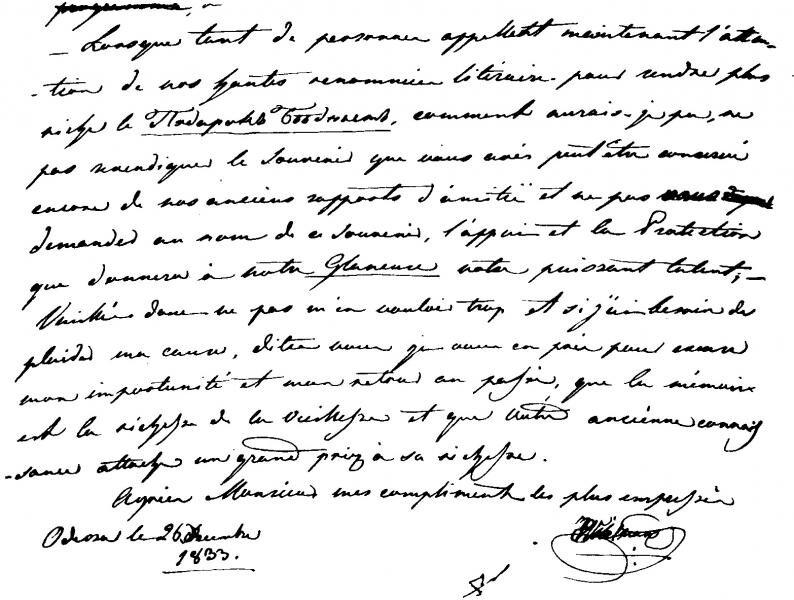 programme,
— Lorsque tant de personnes appellent maintenant l'atten-
-tion de nos hautes renommées litéraires pour rendre plus
riche le Подарокъ Бѣднымъ, comment aurais-je pu, ne
pas revendiquer le souvenir que vous avés peut être conservé
encore de nos anciens rapports d'amitié et ne pas
demander au nom de ce souvenir, l'appui et la Protection
que donnera à notre Glaneuse votre puissant talent; —
Veuillés donc ne pas m'en vouloir trop et si j'ai besoin de
plaider ma cause, dites vous je vous en prie pour excuser
mon importunité et mon retour au passé, que la mémoire
est la richesse de la vieillesse et que votre anciènne connais
-sance attache un grand prix à sa richesse.
Agréez Monsieur mes compliments les plus empressés
Odessa le 26 Decembre
1833.